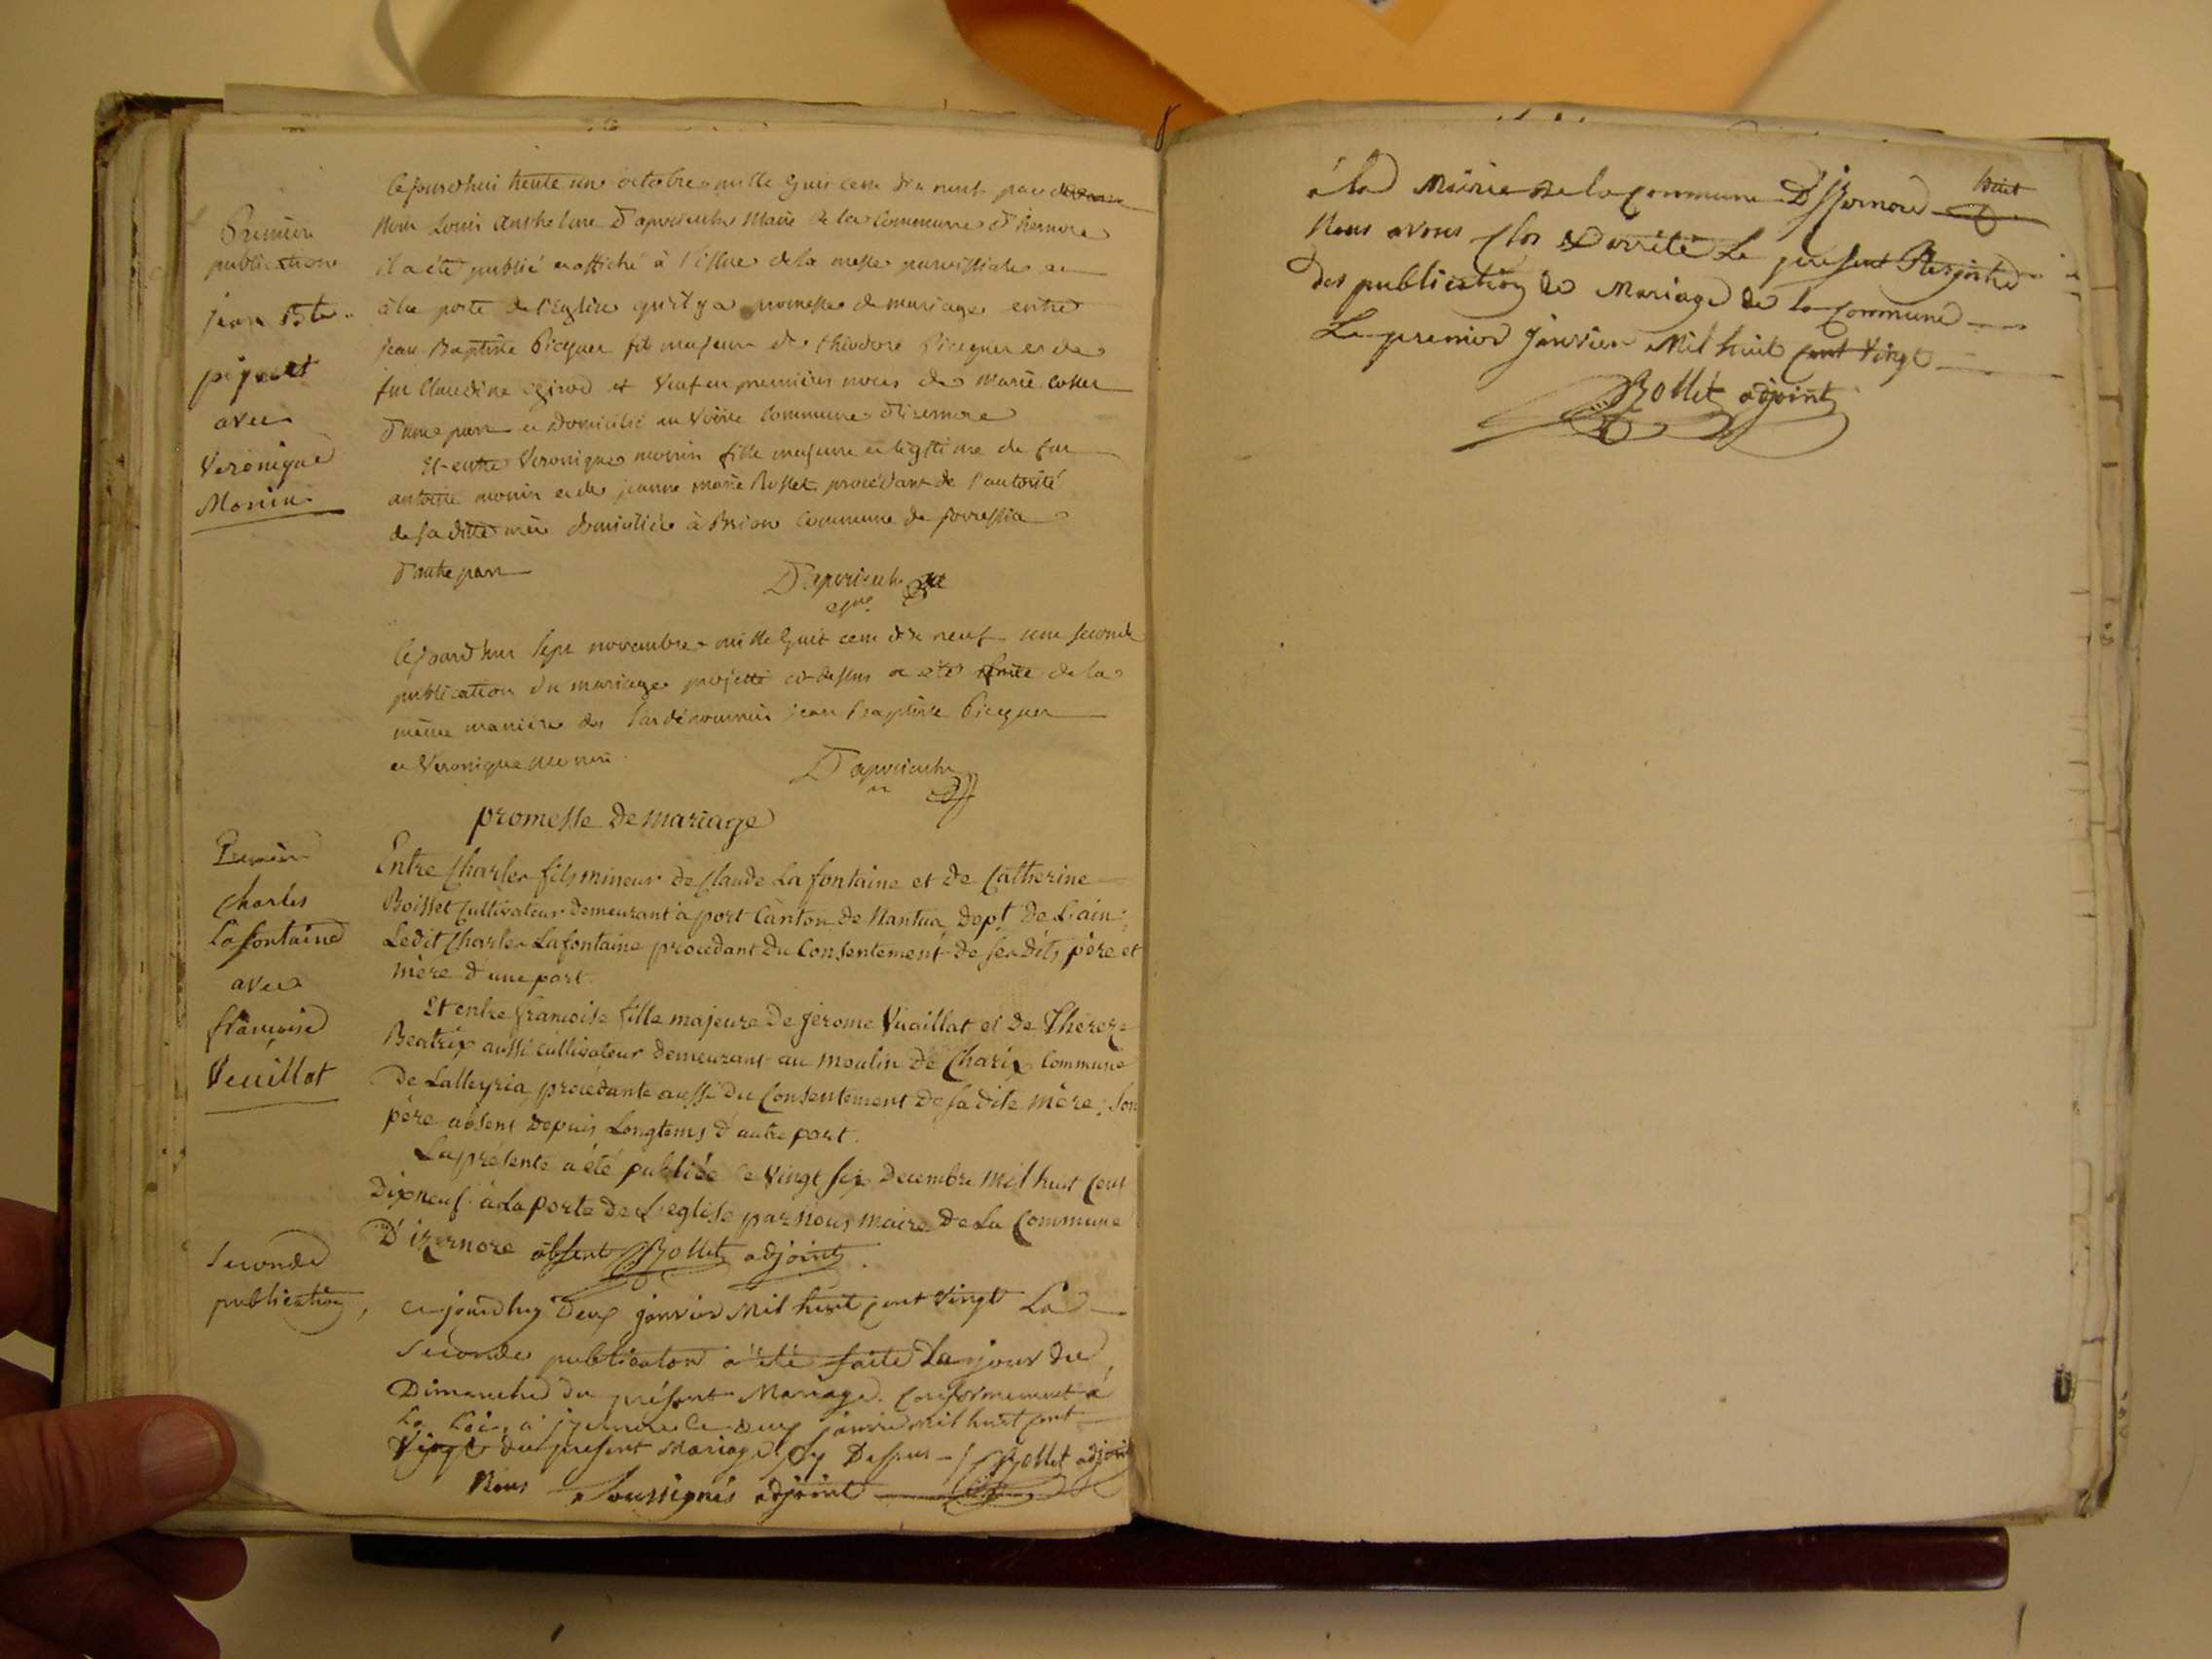 Premiere
publication
jean Bte
piquet
avec
Veronique
Monin
Cejourdhui trente un octobre mille huit cent dix neuf par devant
Nous Louis Anthelme D'apvrieulx Maire de la Commune d'hernore
il a été publié et affiché à l'issue de la messe paroissiale et
à la porte de l'Eglise qu'il y a promesse de mariage entre
jean Baptiste Picquet fils majeur de théodore Picquet et de
fue Claudine girod et Veuf en premieres noces de Marie
d'une part et domicilié au Voërle Commune d'izernore
Et entre Veronique monin fille majeure et legitime de feu
antoine monin et de jeanne marie Rosset procédant de l'autorité
de sa ditte mère domiciliée à Brion Commune de
d'autre part
D'apvrieulx
Cejourdhui sept novembre mille huit cent dix neuf une seconde
publication du mariage projetté ci-dessus a été faite de la
même manière des sus dénommés jean Baptiste Picquet
et Veronique Monin
D'apvrieulx
promesse de mariage
Premiere
Charles
Lafontaine
avec
françoise
Veuillat
Entre Charles fils mineur de Claude Lafontaine et de Catherine
Boisset Cultivateur demeurant à port Canton de Nantua, Dept. de L'ain;
Ledit Charles Lafontaine procédant du Consentement de ses dits père et
mère d'une part.
Et entre françoise fille majeure de Jérome Vuaillat et de Thérèze
Beatrix aussi cultivateur demeurant au moulin de Charix Commune
de Lalleyria, procédante aussi du Consentement de sa dite mère; son
père absent depuis Longtems d'autre part.
La présente a été publiée ce Vingt six Decembre mil huit Cent
Dix neuf à la porte de L'eglise par nous maire de La Commune
D'izernore absent Bollet adjoint.
Seconde
publication,
ce jourdhuy deux janvier mil huit cent vingt La
Seconde publication a été faite Le jour du
Dimanche du présent Mariage. Conformement à
La Loi, à izernore le deux janvier mil huit cent
Vingt du present Mariage Cy Dessus - Bollet adjoint
Nous Soussignés adjoint
huit
à la Mairie de la Commune D'Izernore
Nous avons Clos & arrété Le présent Registre
des publication de Mariage de la Commune
Le premier Janvier Mil huit Cent Vingt
Bollet adjoint